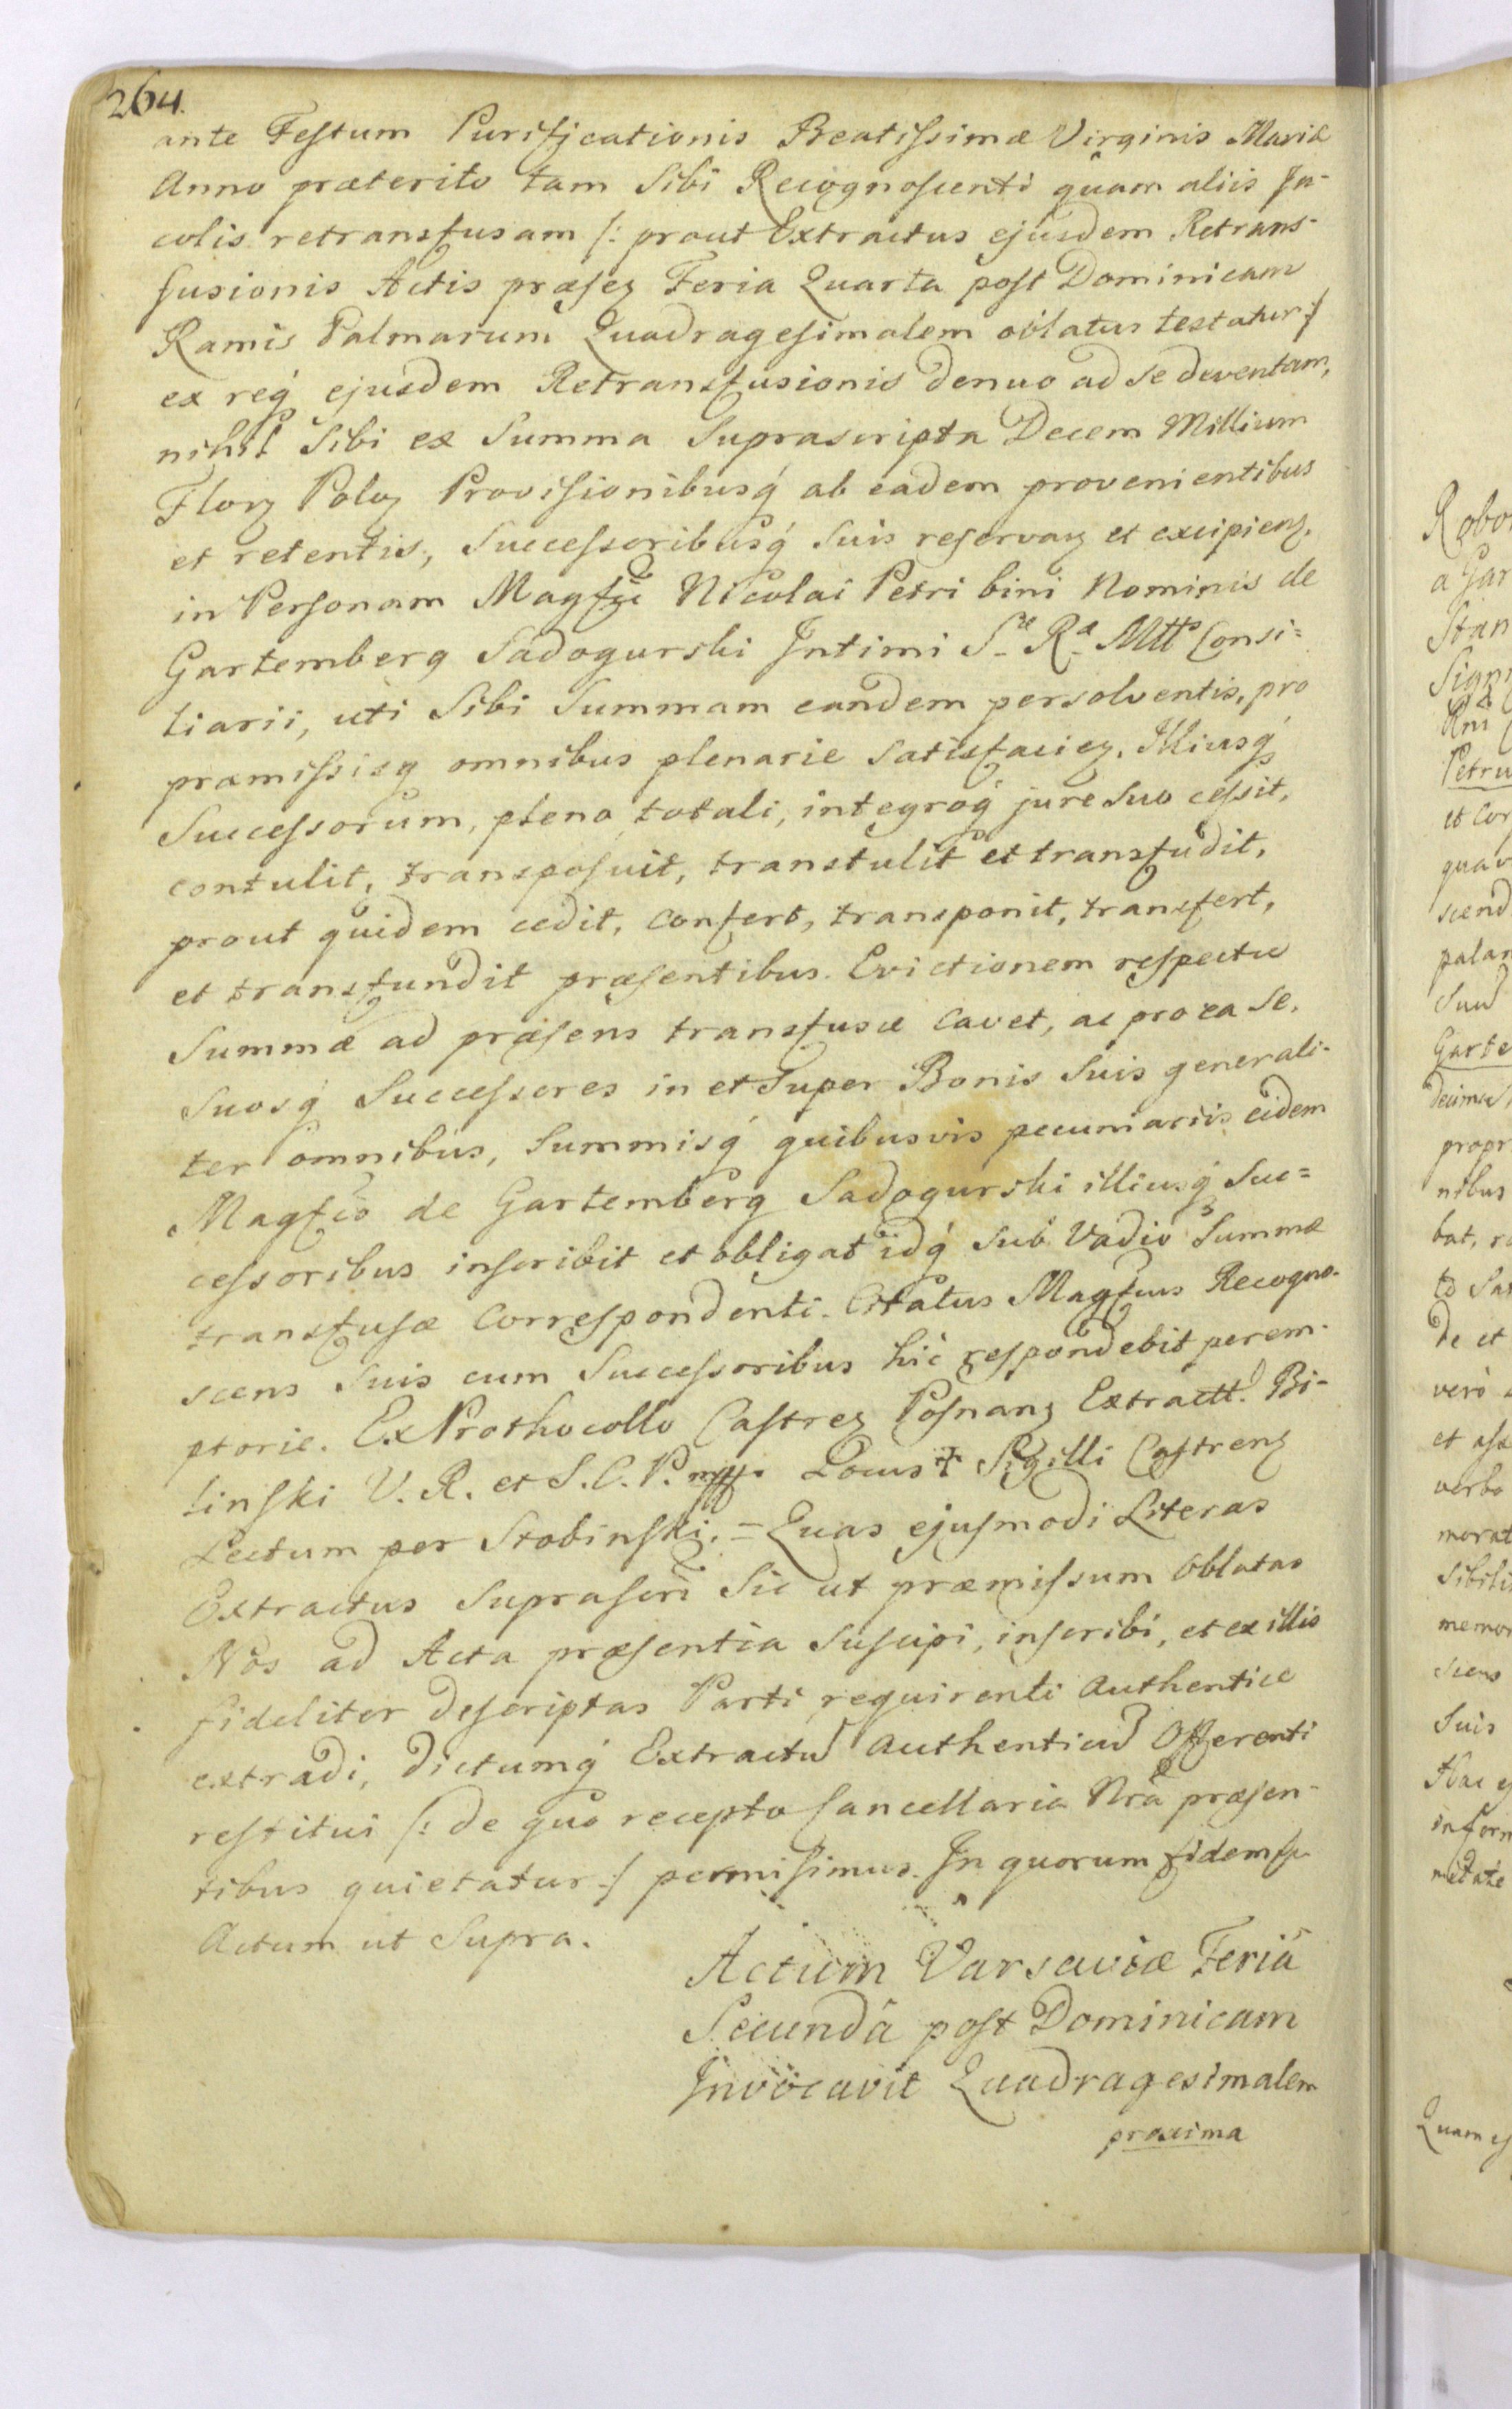 264.
ante Festum Purificationis Beatissimæ Virginis Mariæ
Anno præterito tam Sibi Recognoscenti quam aliis In-
colis retransfusam /: prout Extractus ejusdem Retrans-
fusionis Actis præsez Feria Quarta post Dominicam
Ramis Palmarum Quadragesimalem oblatus testatur :/
ex reg ejusdem Retransfusionis denuo ad Se deventam,
nihil Sibi ex Summa Suprascripta Decem Millium
Florz Poloz Provisionibusq́ ab eadem provenientibus
et retentis, Successoribusq́ Suis reservaz et excipienz.
in Personam Magfci Nicolai Petri bini Nominis de
Gartemberg Sadogurski Intimi S. R. Mtts Consi=
liarii, uti Sibi Summam eandem persolventis, pro
præmissisq omnibus plenarie Satisfaciez, Illiusq́
Successorum, pleno, totali, integroq́ jure Suo cessit,
contulit, transposuit, transtulit et transfudit,
prout quidem cedit, confert, transponit, transfert,
et transfundit præsentibus. Evictionem respectu
Summæ ad præsens transfusæ cavet, ac pro ea Se,
Suosq́ Successores in et Super Bonis Suis generali-
ter omnibus, Summisq́ quibusvis pecuniariis eidem
Magfco de Gartemberg Sadogurski illiusq́ Suc=
cessoribus inscribit et obligat idq́ sub Vadio Summæ
transfusæ Correspondenti. Citatus Magfcus Recogno-
scens Suis cum Successoribus hic respondebit perem-
ptorie. Ex Prothocollo Castrez Posnanz Extractt. Bi-
linski V. R. et S. C. P. mpp. Locus ‡ Sigilli Castrenz
Lectum per Stobinski. = Quas ejusmodi Literas
Extractus Suprascri Sic ut præmissum Oblatas
Nos ad Acta præsentia Suscipi, inscribi, et ex illis
fideliter descriptas Parti requirenti Authentice
extradi, dictumq́ Extractũ Authenticũ Offerenti
restitui /: de quo recepto Cancellaria Nrã præsen-
tibus quietatur :/ permisimus. In quorum fidem
Actum ut Supra.
Actum Varsaviæ Feriâ
Secundâ post Dominicam
Invocavit Quadragesimalem
proxima
Robo
a Gar
Stan
Sign
Petru
et Cor
quav
scend
palam
Suũ
Garte
decimæ
propr
nibus
bat, r
to Sa
de et
verò
et
verbo
morat
sibili
memor
sciens
Suis
Hac ej
inform
metate
Quam ej